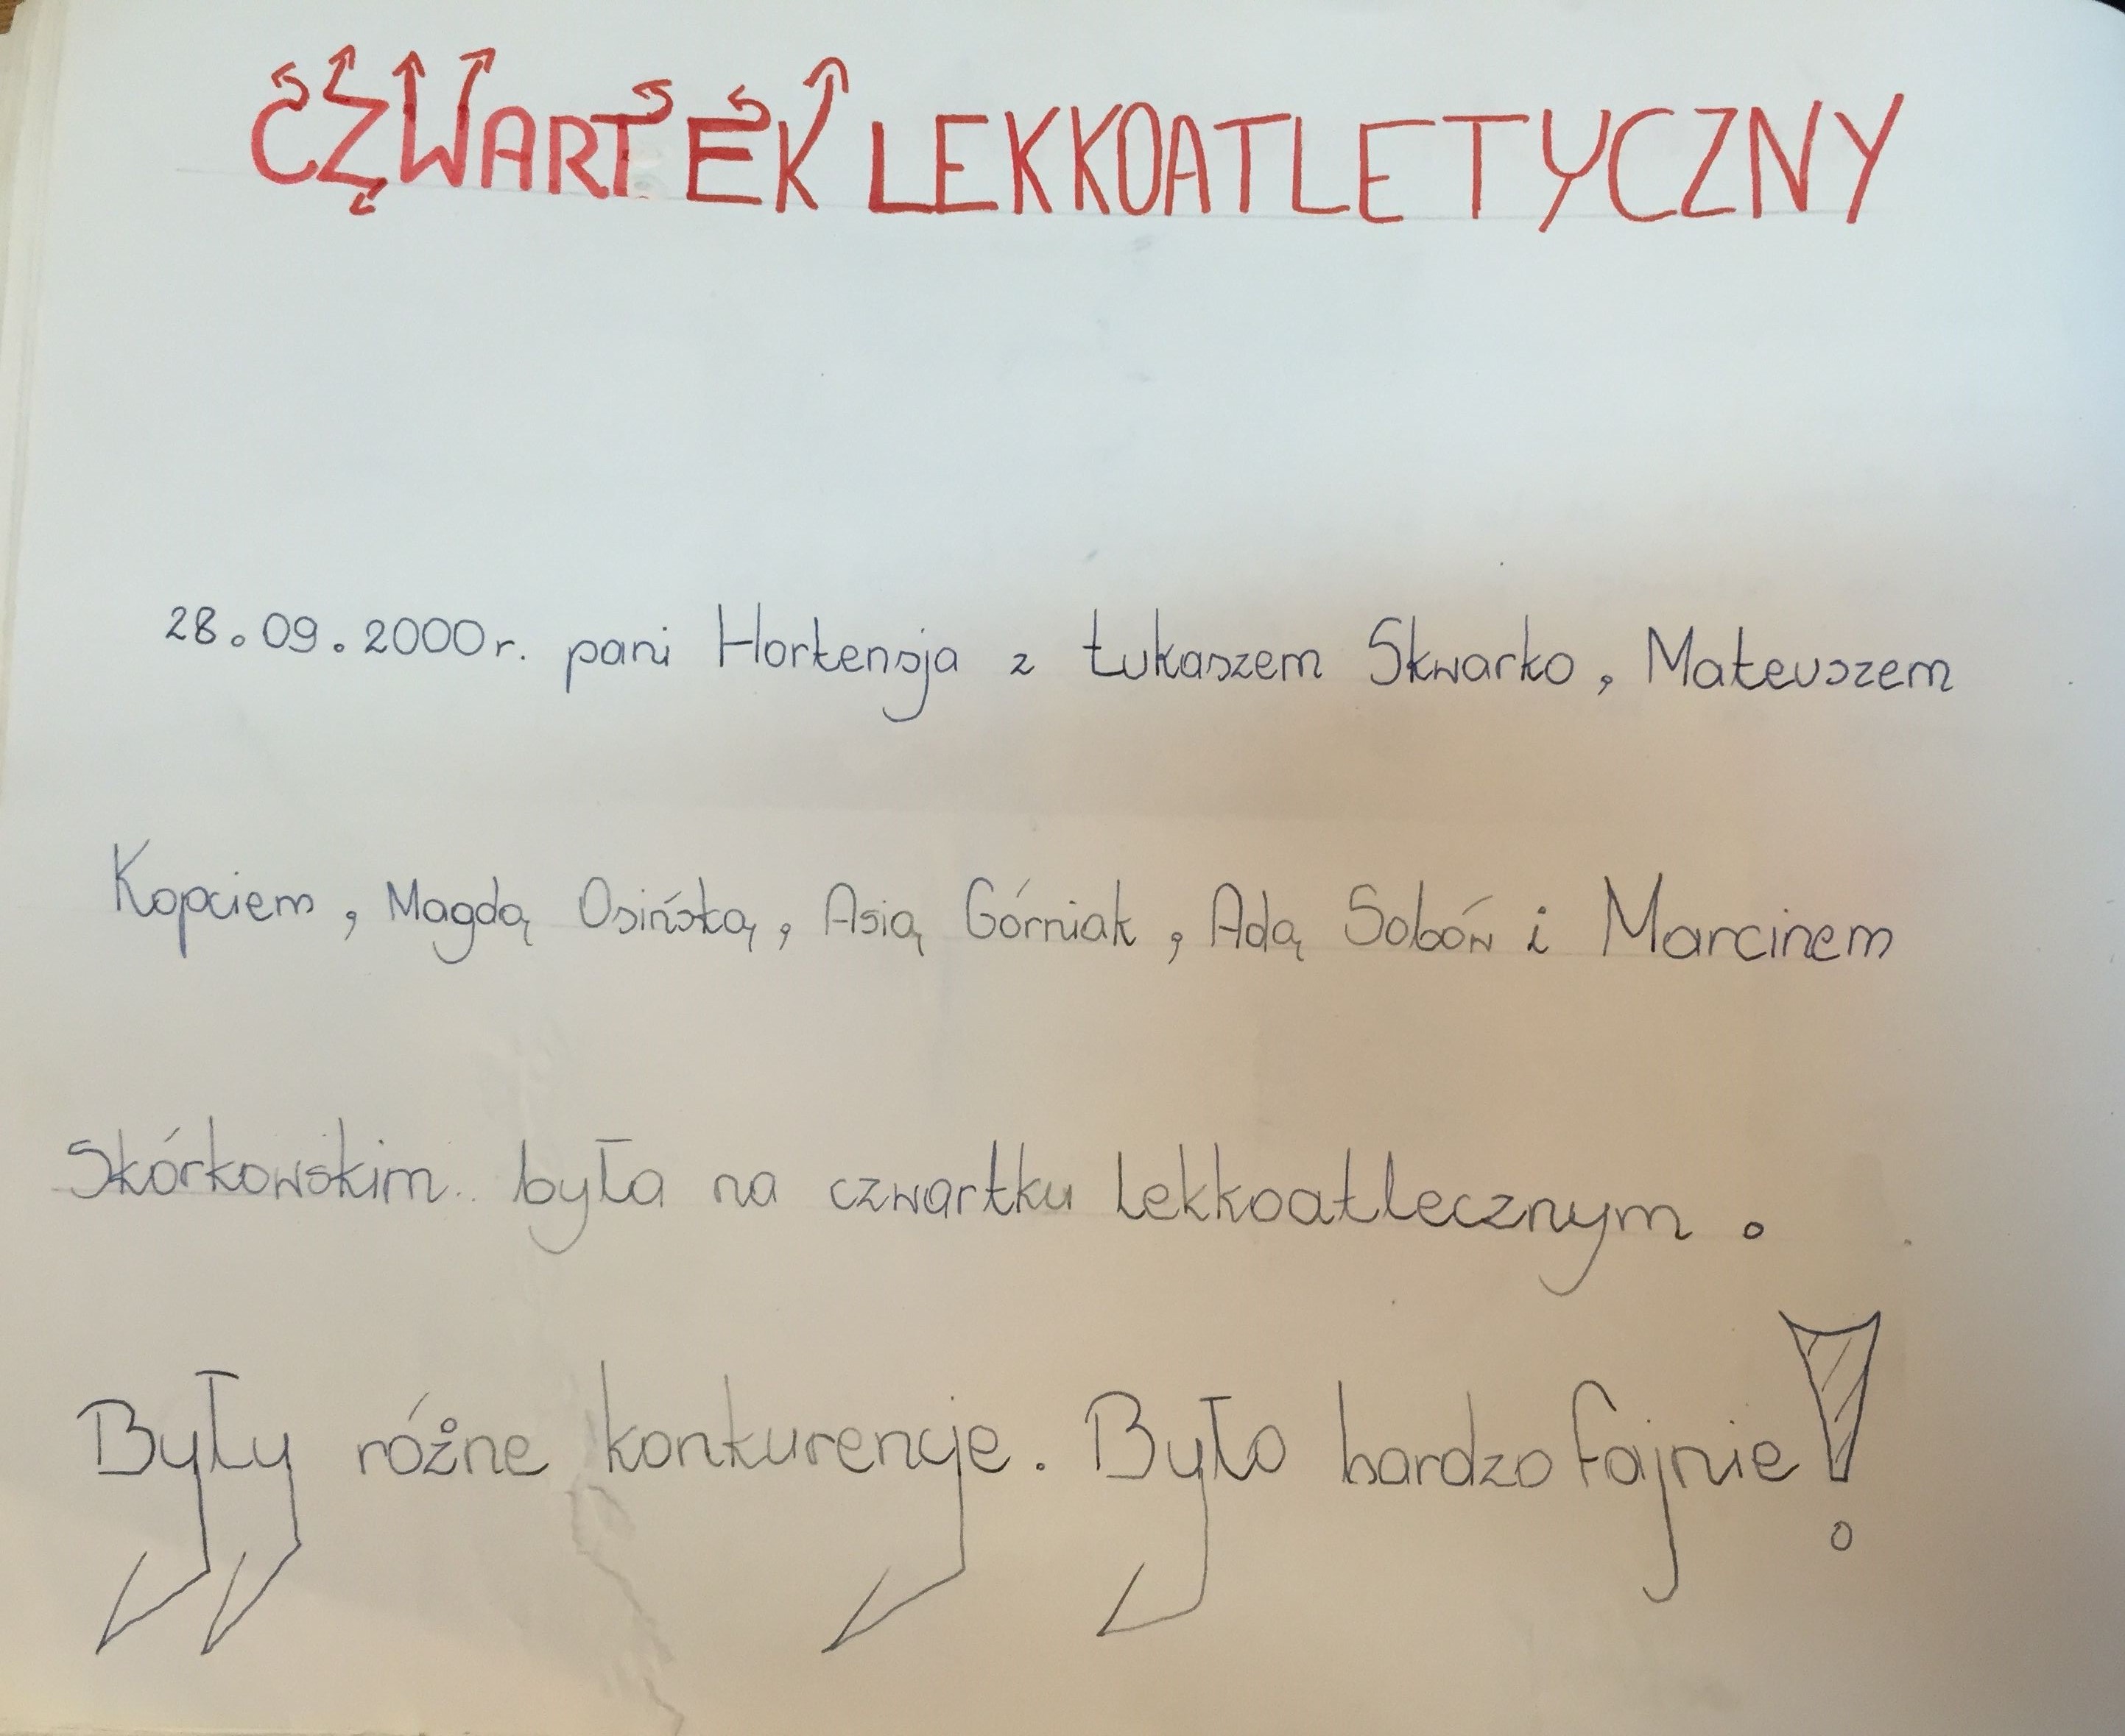 CZWARTEK LEKKOATLETYCZNY
28.09.2000r. pani Hortensja z Łukaszem Skwarko, Mateuszem
Kopciem, Magdą Osińską, Asią Górniak, Adą Sobów i Marcinem
Skórkowskim.. była na czwartku lekkoatlecznym.
Były różne konkurencje. Było bardzo fajnie!